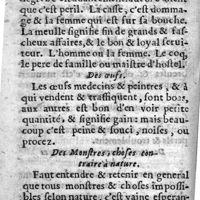 que c'est peril. La casse, c'est domma-
ge & la femme qui est sur sa bouche.
La meulle signifie fin de grands & fas-
cheux affaires, & le bon & loyal servi-
teur. L'homme ou la femme. Le coq,
le pere de famille ou maistre d'hostel.
Des œufs.
Les œufs medecins & peintres, & à
qui vendent & trafiquent, sont bons,
aux autres est bon d'en voir petite
quantité, & signifie gain: mais beau-
coup c'est peine & souci, noises, ou
procez.
Des Monstres, choses con-
traire à nature.
Faut entendre & retenir en general
que tous monstres & choses impossi-
bles selon nature, c'est vaine esperan-